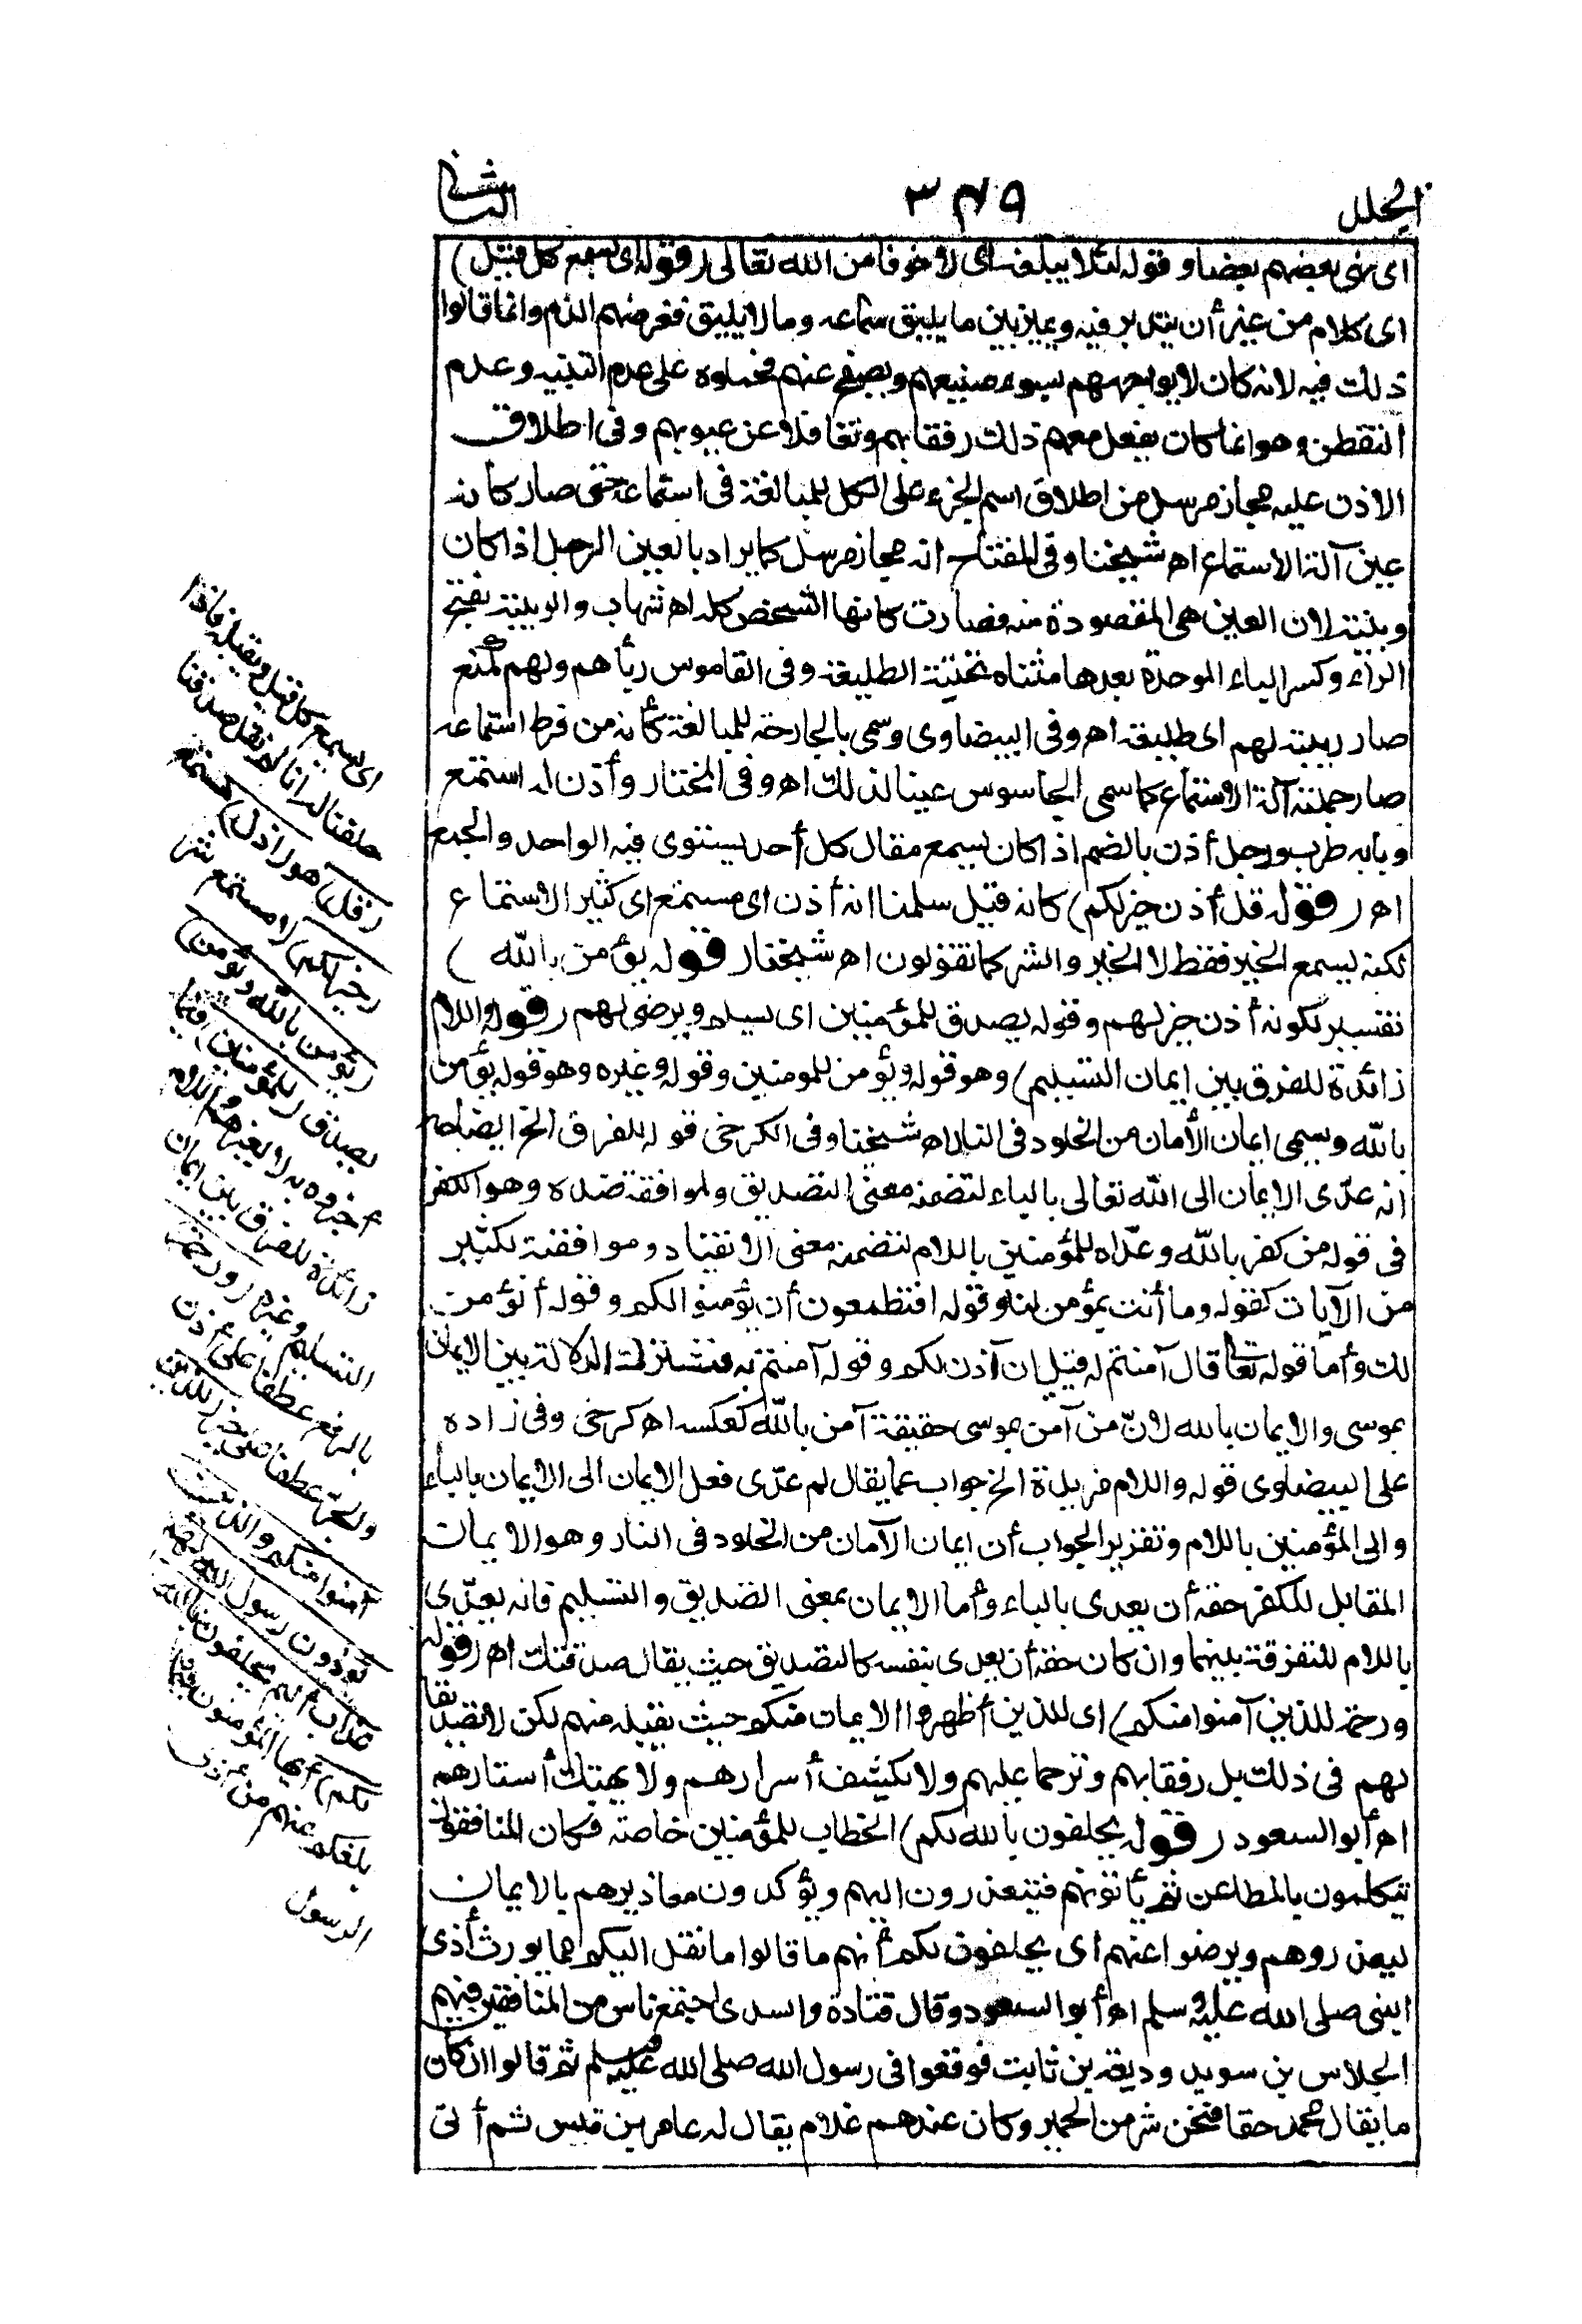 الجلد
٣٤٩
الثانى
اى نهى بعضهم بعضا وقوله لئلا يبلغه اى لا خوفا من الله تعالى (قوله اى يسمع كل قيل)
اى كلام من غير أن يتدبر فيه ويميز بين ما يليق سماعه وما لا يليق فغرضهم الذم وانما قالوا
ذلك فيه لانه كان لا يواجههم بسوء صنيعهم ويصفح عنهم فحملوه على عدم التنبه وعدم
التفطن وهو انما كان يفعل معهم ذلك رفقا بهم وتغافلا عن عيوبهم وفى اطلاق
الاذن عليه مجاز مرسل من اطلاق اسم الجزء على الكل للمبالغة فى استماعه حتى صار كأنه
عين آلة الاستماع اه شيخنا وفى المفتاح انه مجاز مرسل كما يراد بالعين الرجل اذا كان
ربيئة لان العين هى المقصودة منه فصارت كانها الشخص كله اه شهاب والربيئة بفتح
الراء وكسر الباء الموحدة بعدها مثناه تحتية الطليعة وفى القاموس ربأهم ولهم كمنع
صار ربيئة لهم اى طليعة اه وفى البيضاوى وسمى بالجارحة للمبالغة كأنه من فرط استماعه
صار جملته آلة الاستماع كما سمى الجاسوس عينا لذلك اه وفى المختار وأذن له استمع
وبابه طرب ورجل أذن بالضم اذا كان يسمع مقال كل أحد يستوى فيه الواحد والجمع
اه (قوله قل أذن خير لكم) كانه قيل سلمنا انه أذن اى مستمع اى كثير الاستماع
لكنه يسمع الخير فقط لا الخير والشر كما تقولون اه شيخنا (قوله يؤمن بالله)
تفسير لكونه أذن خير لهم وقوله يصدق للمؤمنين اى يسلم ويرضى لهم (قوله واللام
زائدة للفرق بين إيمان التسليم) وهو قوله ويؤمن للمومنين وقوله وغيره وهو قوله يؤمن
بالله ويسمى ايمان الأمان من الخلود فى النار اه شيخنا وفى الكرخى قوله للفرق الخ ايضاحه
انه عدّى الايمان الى الله تعالى بالباء لتضمنه معنى التصديق ولموافقة ضده وهو الكفر
فى قوله من كفر بالله وعدّاه للمؤمنين باللام لتضمنه معنى الانقياد وموافقة لكثير
من الآيات كقوله وما أنت بمؤمن لنا وقوله افتطمعون أن يؤمنوا لكم وقوله أنؤمن
لك وأما قوله تعالى قال آمنتم له قبل ان آذن لكم وقوله آمنتم به فمشترك الدلالة بين الايمان
بموسى والايمان بالله لانّ من آمن بموسى حقيقة آمن بالله كعكسه اه كرخى وفى زاده
على البيضاوى قوله واللام مزيدة الخ جواب عما يقال لم عدّى فعل الايمان الى الايمان بالباء
والى المؤمنين باللام وتقرير الجواب أن ايمان الآمان من الخلود فى النار وهو الايمان
المقابل للكفر حقه أن يعدى بالباء وأما الايمان بمعنى التصديق والتسليم فانه يعدّى
باللام للتفرقة بينهما وان كان حقه أن يعدى بنفسه كالتصديق حيث يقال صدقتك اه (قوله
ورحمة للذين آمنوا منكم) اى للذين أظهروا الايمان منكم حيث يقبله منهم لكن لا تصديقا
لهم فى ذلك بل رفقا بهم وترحما عليهم ولا يكشف أسرارهم ولا يهتك أستارهم
اه أبو السعود (قوله يحلفون بالله لكم) الخطاب للمؤمنين خاصة فكان المنافقون
يتكلمون بالمطاعن ثم يأتونهم فيتعذرون اليهم ويؤكدون معاذيرهم بالايمان
ليعذروهم ويرضوا عنهم اى يحلفون لكم أنهم ما قالوا ما نقل اليكم مما يورث أذى
النبى صلى الله عليه وسلم اه أبو السعود وقال قتادة والسدى اجتمع ناس من المنافقين فيهم
الجلاس بن سويد ووديعة بن ثابت فوقعوا فى رسول الله صلى الله عليه وسلم ثم قالوا ان كان
ما يقال محمد حقا فنحن شر من الحمير وكان عندهم غلام يقال له عامر بن قيس ثم أتى
اى يسمع كل قيل ويقبله فاذا
حلفنا له أنا لم نقل صدقنا
(قل) هو (اذن) مستمع
(خير لكم) لا مستمع شر
(يؤمن بالله ويؤمن)
يصدق (للمؤمنين) فيما
أخبروه به لا لغيرهم واللام
زائدة للفرق بين ايمان
التسليم وغيره (ورحمة)
بالرفع عطفا على أذن
والجر عطفا على خير (للذين
آمنوا منكم والذين
يؤذون رسول الله لهم
عذاب أليم يحلفون بالله
لكم) أيها المؤمنون فيما
بلغكم عنهم من أذى
الرسول